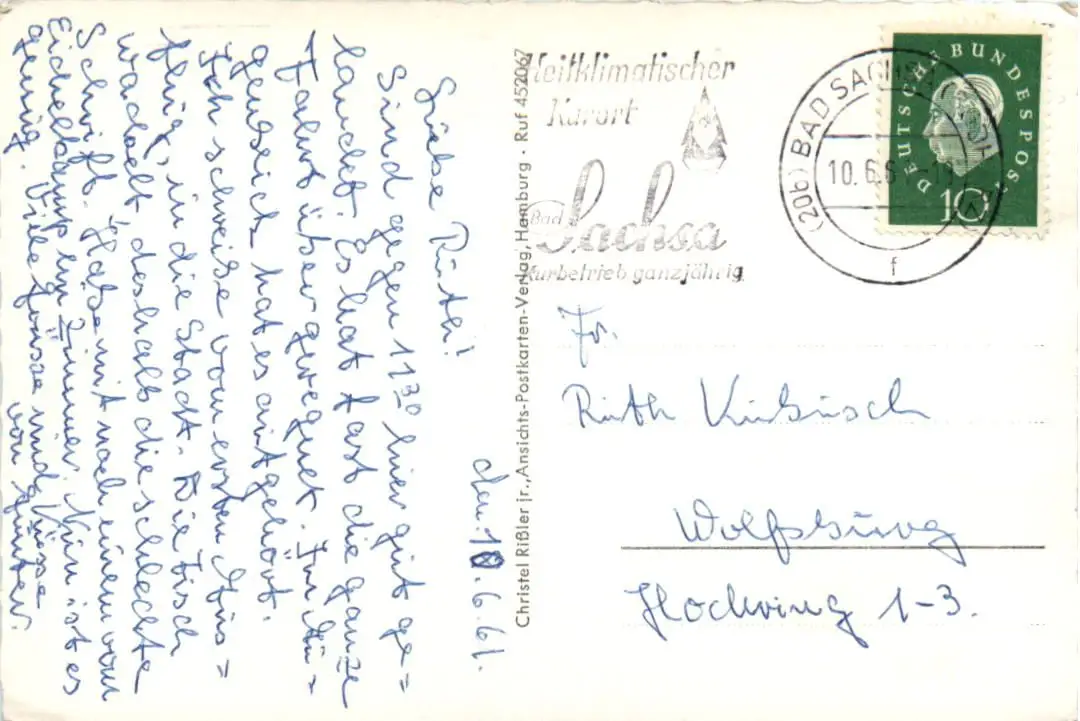 den 10.6.61.
Liebe Ruth!
Sind gegen 11³⁰ hier gut ge=
landet. Es hat fast die ganze
Fahrt über geregnet. Im Au=
genblick hat es aufgehört.
Ich schreibe vom ersten Aus=
flug, in die Stadt. Die Tisch
wackelt, deshalb die schlechte
Schrift. Habe mit noch einem vom
Eichelkamp ein Zimmer. Nun ist es
genug. Viele Grüsse und Küsse
von Günter.
Christel Rißler jr., Ansichts-Postkarten-Verlag, Hamburg · Ruf 452067
Heilklimatischer
Kurort
Bad
Sachsa
Kurbetrieb ganzjährig
(20b) BAD SACHSA
10.6.6
f
DEUTSCHE BUNDESPOST
10
Fr.
Ruth
Wolfsburg
Hochring 1-3.